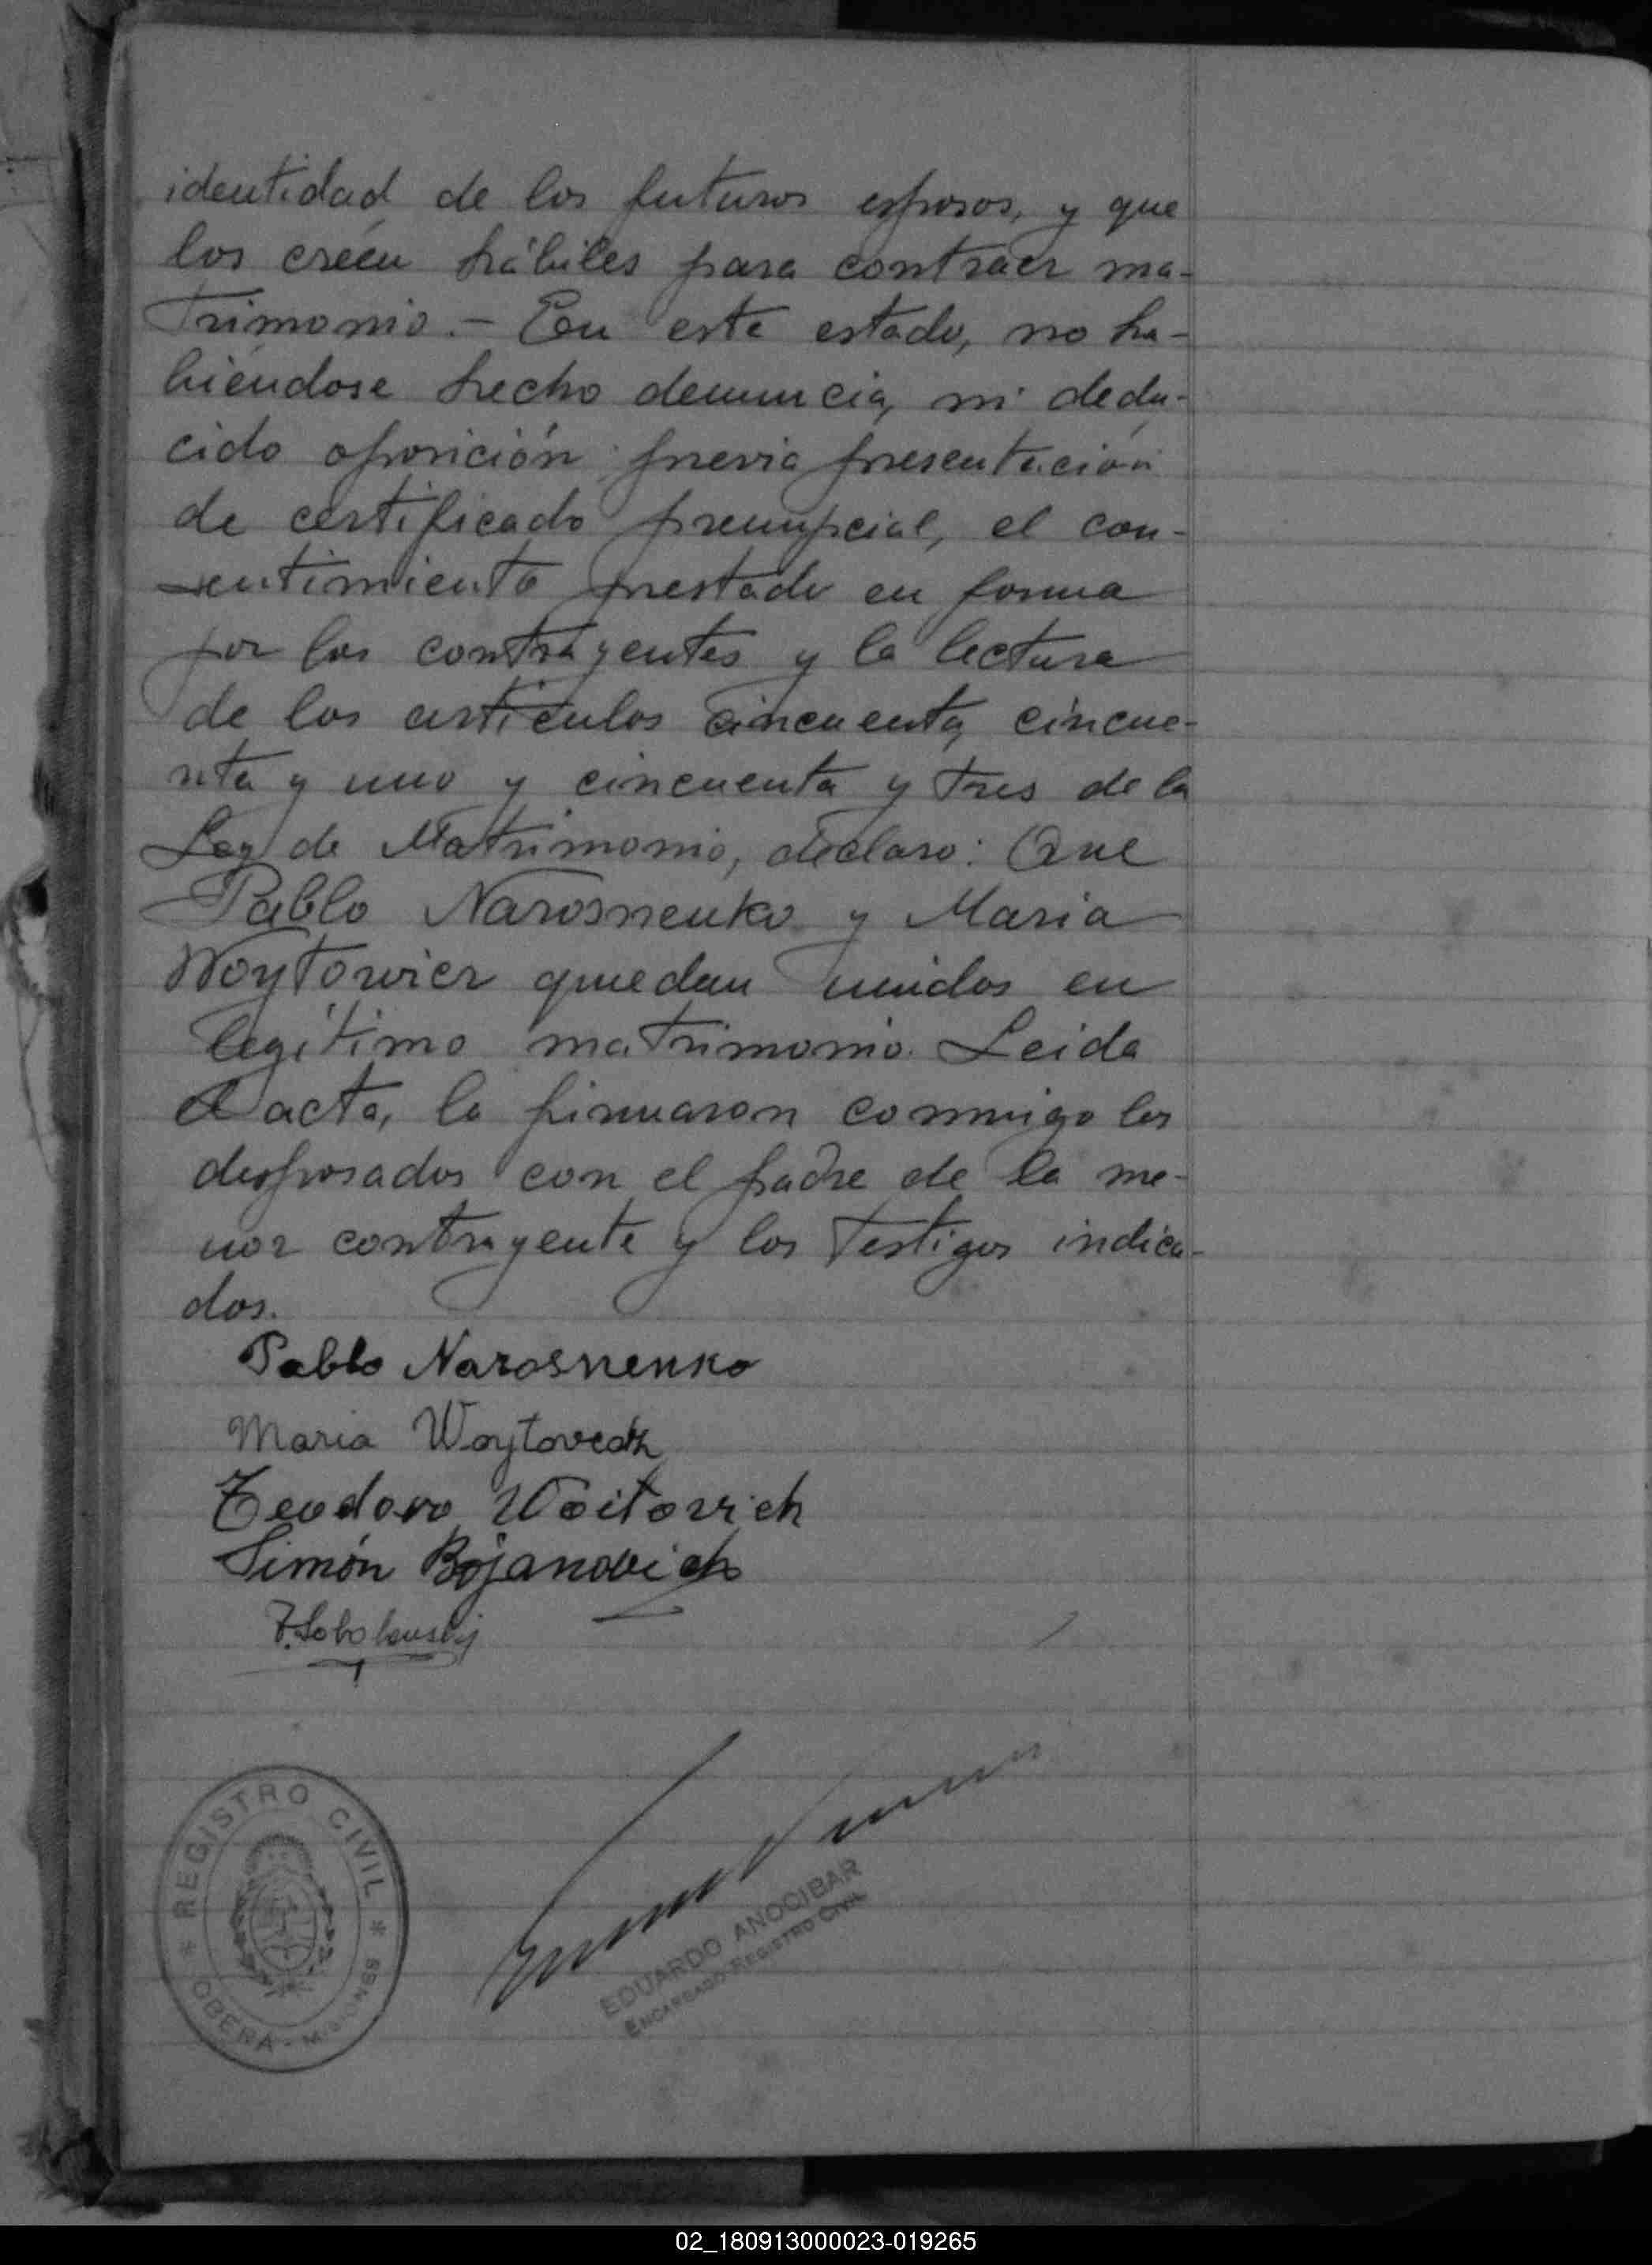 identidad de los futuros esposos, y que
los creen hábiles para contraer ma-
trimonio.- En este estado, no ha-
biéndose hecho denuncia, ni dedu-
cido oposición previa presentación
de certificado prenupcial, el con-
sentimiento prestado en forma
por los contrayentes y la lectura
de los artículos cincuenta, cincue-
nta y uno y cincuenta y tres de la
Ley de Matrimonio, declaro: Que
Pablo Narosnenko y Maria
Woytowicz quedan unidos en
legítimo matrimonio. Leida
el acta, la firmaron conmigo los
desposados con el padre de la me-
nor contrayente y los testigos indica-
dos.
Pablo Narosnenko
Maria
Teodoro Woitovich
Simón Bojanovich
REGISTRO CIVIL
OBERA - MISIONES
EDUARDO ANOCIBAR
ENCARGADO REGISTRO CIVIL
02_180913000023-019265